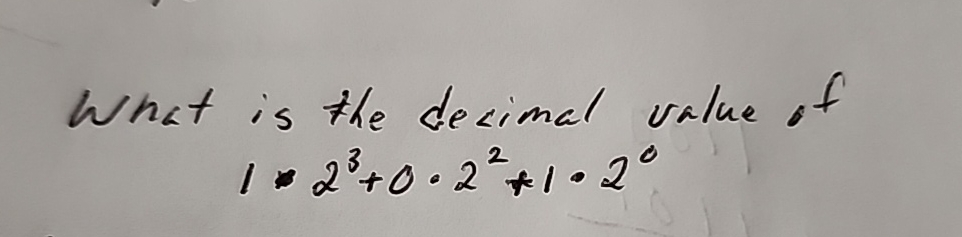 What is the decimal value of
1 • 2³+0 • 2²+1 • 2⁰